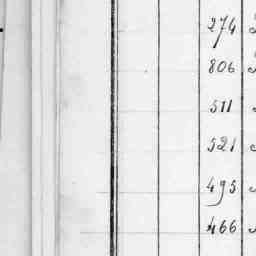 274
806
511
521
495
466